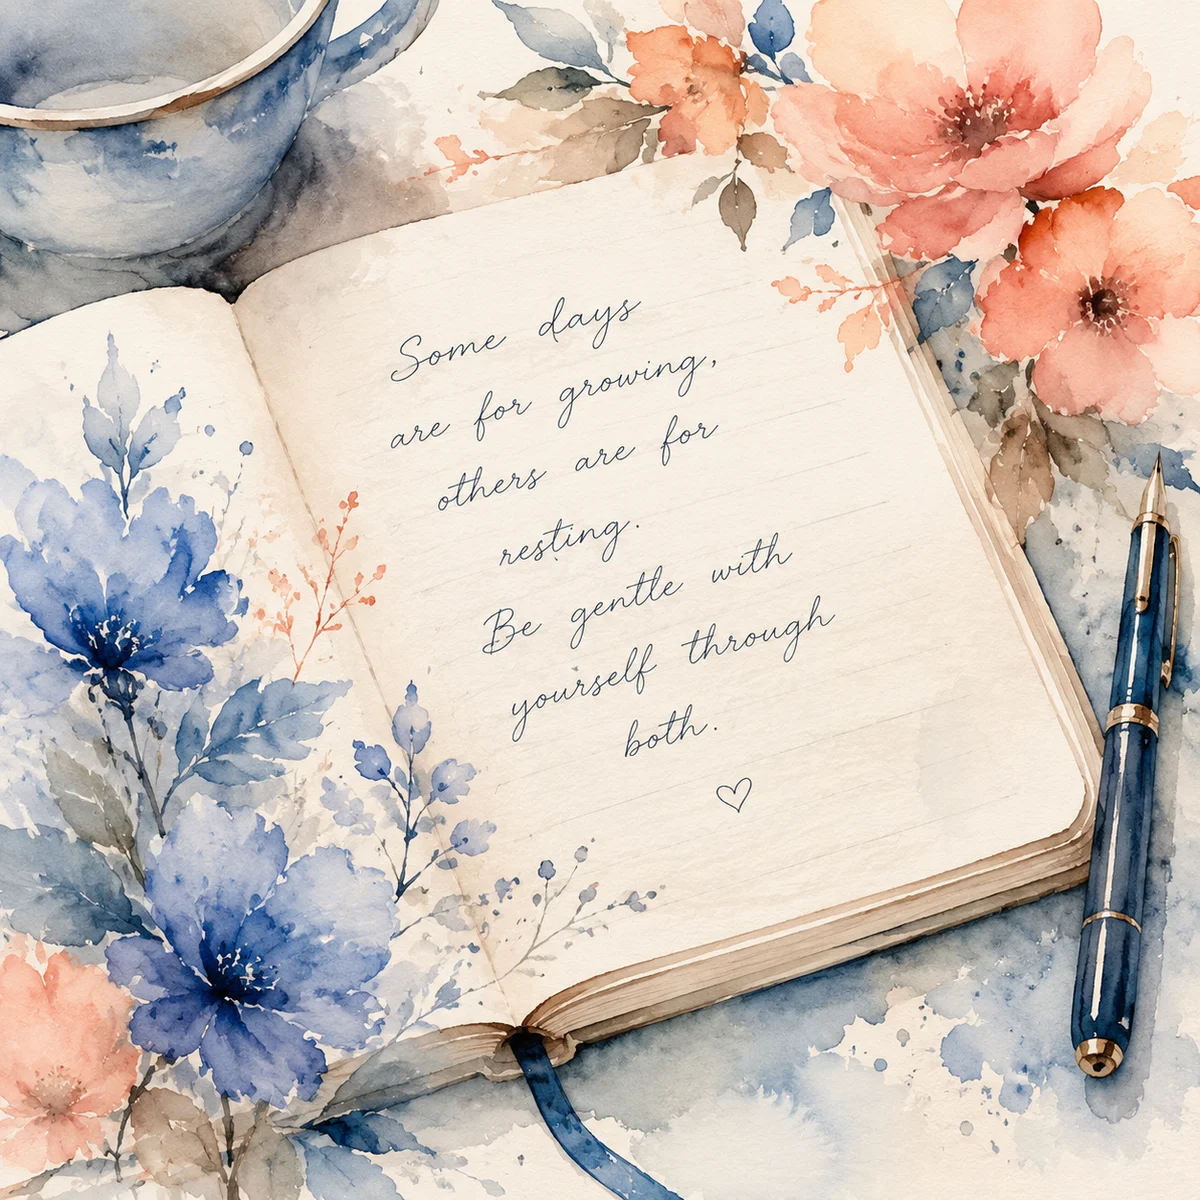 Some days
are for growing,
others are for
resting.
Be gentle with
yourself through
both.